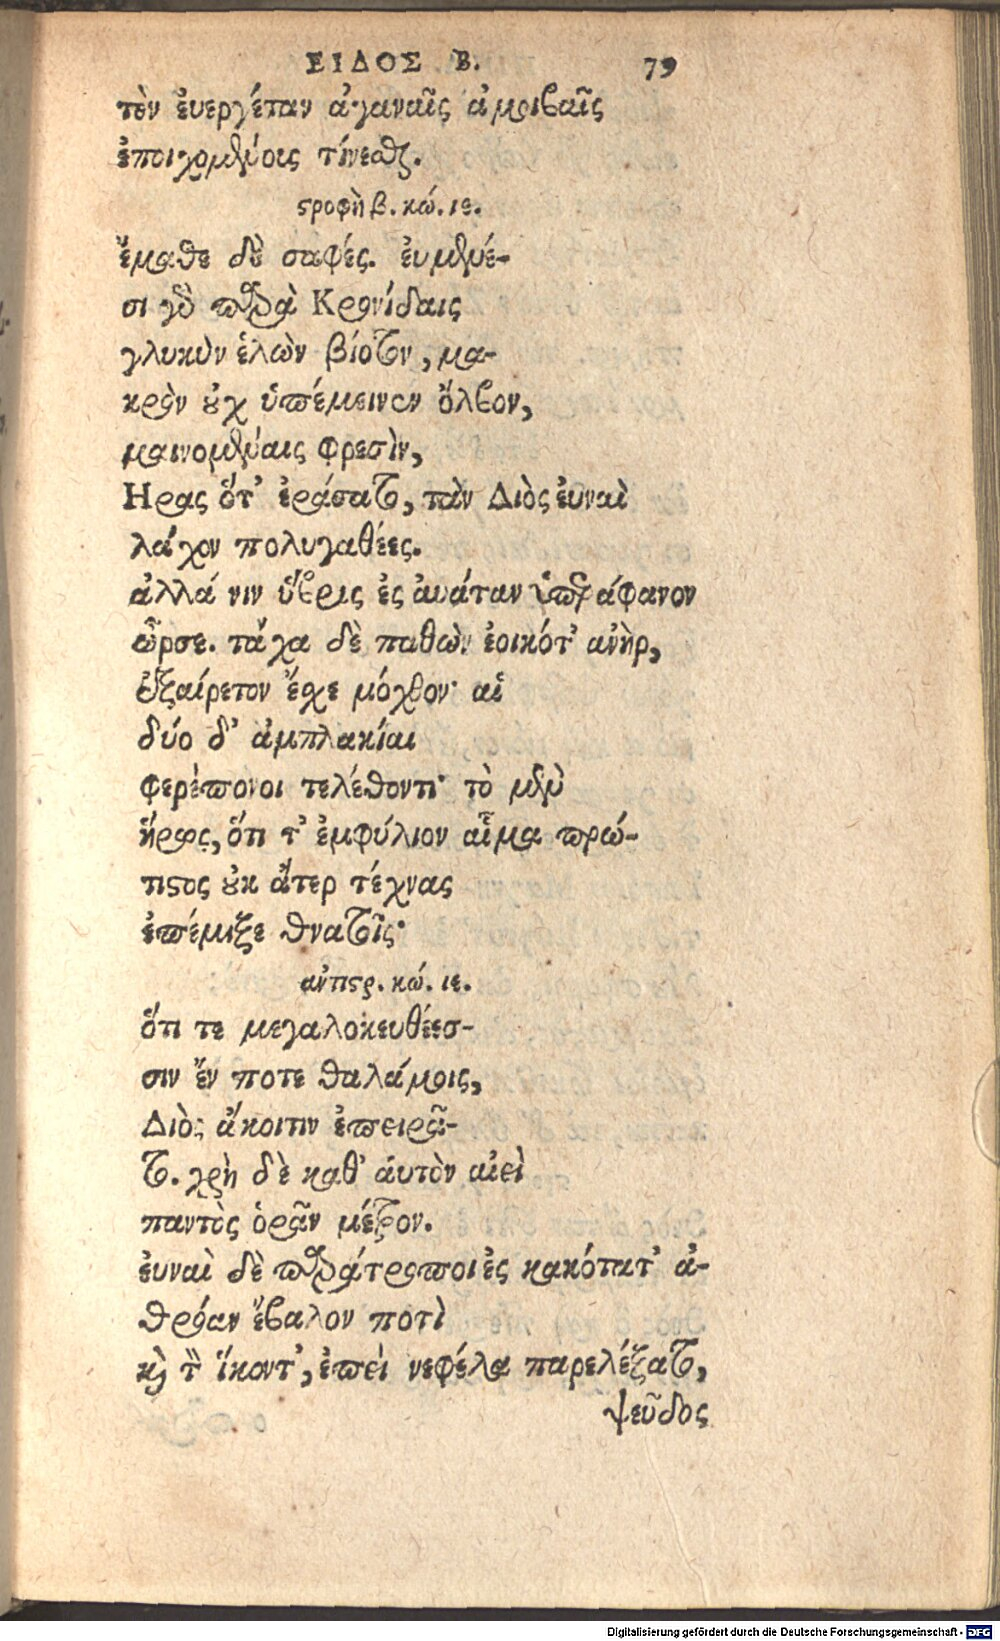 ΕΙΔΟΣ Β. 79
τὸν ἐυεργέταν ἀγαναῖς ἀμοιβαῖς
ἐποιχομένοις τίνεσθαι.
ϛροφὴ β. κώ. ιε.
ἔμαθε δὲ σαφές. ἐυμενέ-
σι γὸ παρὰ Κρονίδαις
γλυκὺν ἑλὼν βίοτον, μα-
κρὸν οὐχ ὑπέμεινεν ὄλβον,
μαινομέναις φρεσὶν,
Ηρας ὅτ' ἐράσατο, τὰν Διὸς ἐυναὶ
λάχον πολυγαθέες.
ἀλλά νιν ὕβρις ἐς ἀυάταν ὑπεράφανον
ὦρσε. τάχα δὲ παθὼν ἐοικότ' ἀνὴρ,
ἐξαίρετον ἔχε μόχθον· αἱ
δύο δ' ἀμπλακίαι
φερέπονοι τελέθοντι· τὸ μὲν
ἥρως, ὅτι τ' ἐμφύλιον αἷμα πρώ-
τιϛος οὐκ ἄτερ τέχνας
ἐπέμιξε θνατοῖς·
ἀντιϛρ. κώ. ιε.
ὅτι τε μεγαλοκευθέεσ-
σιν ἔν ποτε θαλάμοις,
Διὸς ἄκοιτιν ἐπειρᾶ-
το. χρὴ δὲ καθ' ἁυτὸν αἰεὶ
παντὸς ὁρᾶν μέτρον.
ἐυναὶ δὲ παράτροποι ἐς κακότατ' ἀ-
θρόαν ἔβαλον ποτὶ
καὶ τὸν ἵκοντ', ἐπεὶ νεφέλα παρελέξατο,
ψεῦδος
Digitalisierung gefördert durch die Deutsche Forschungsgemeinschaft - DFG